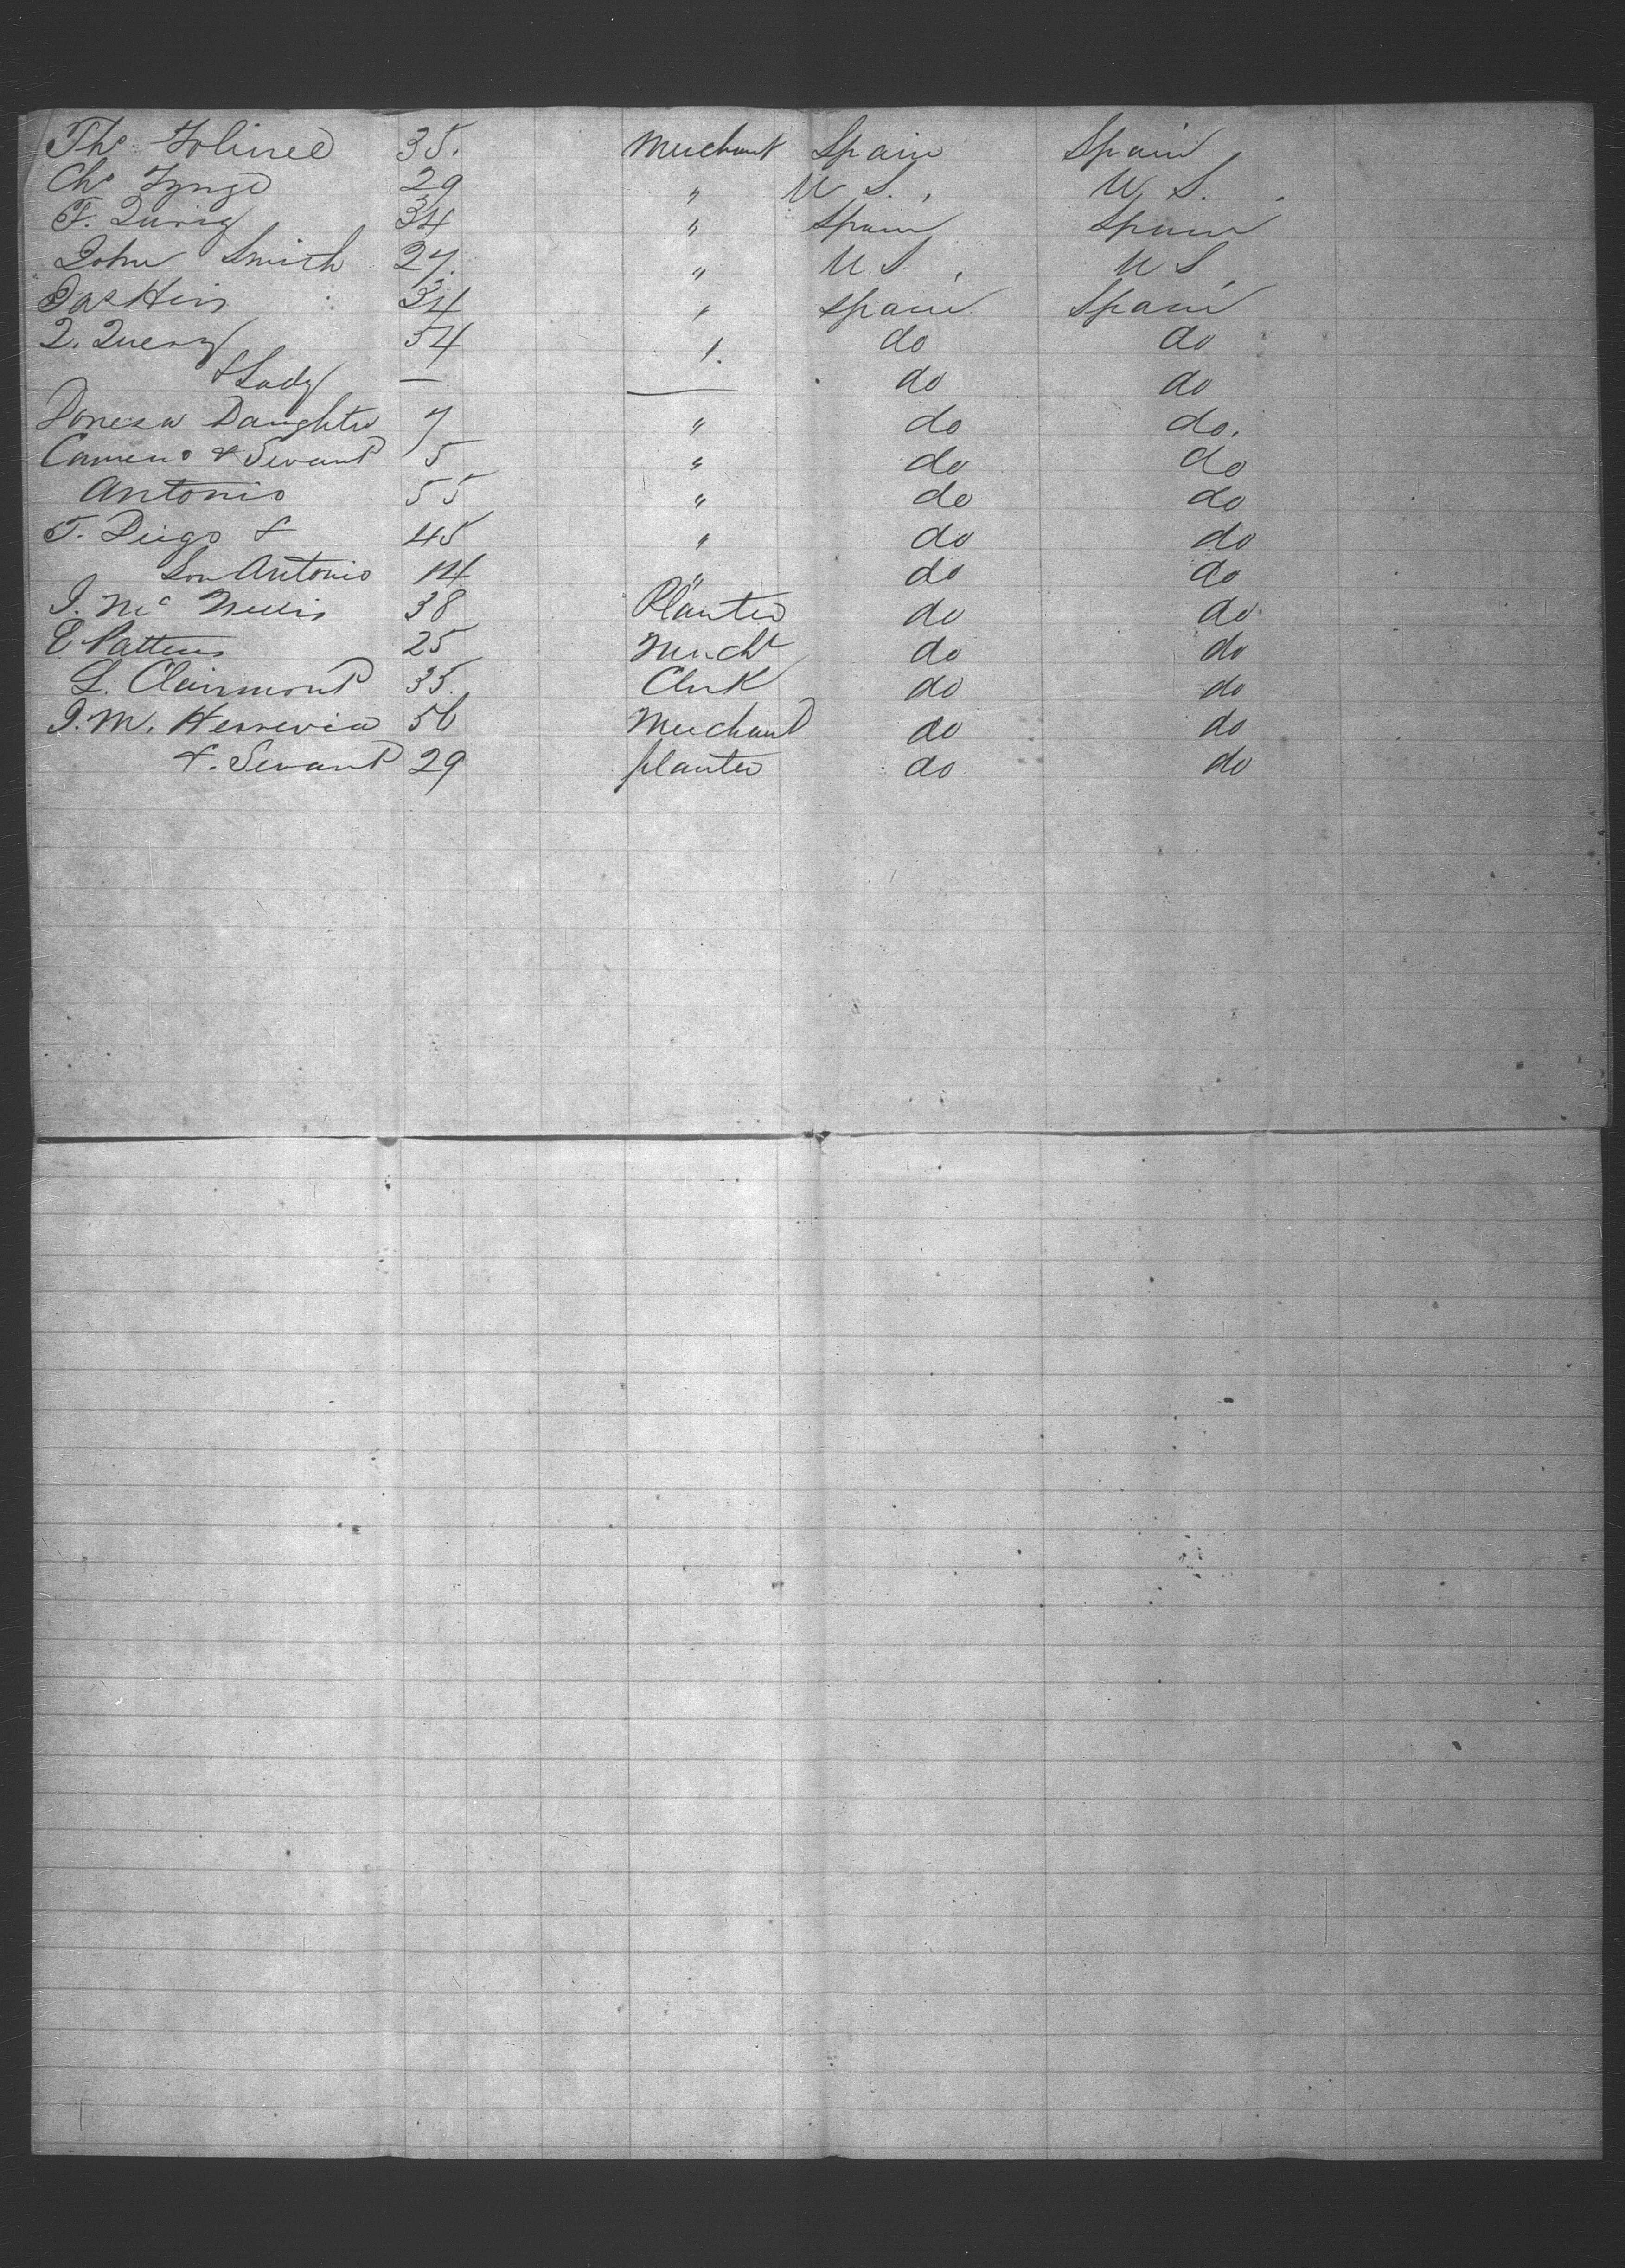 Thos Folinee 35. Merchant Spain Spain
Chs Tyngo 29 " U S. U. S.
F. Quirig 34 " Spain Spain
John Smith 27. " U S. U S
Jas Hein 34 " Spain Spain
J. Query 34 " do do
& Lady — — do do
Doness Daughter 7 " do do.
Camero & Servant 5 " do do
Antonio 55 " do do
T. Diego & 45 " do do
Son Antonio 14 " do do
J. Mc Nellis 38 Planter do do
E Pattens 25 Mercht do do
L. Clairmont 35. Clerk do do
J. M. Herrevia 56 Merchant do do
&. Servant 29 planter do do